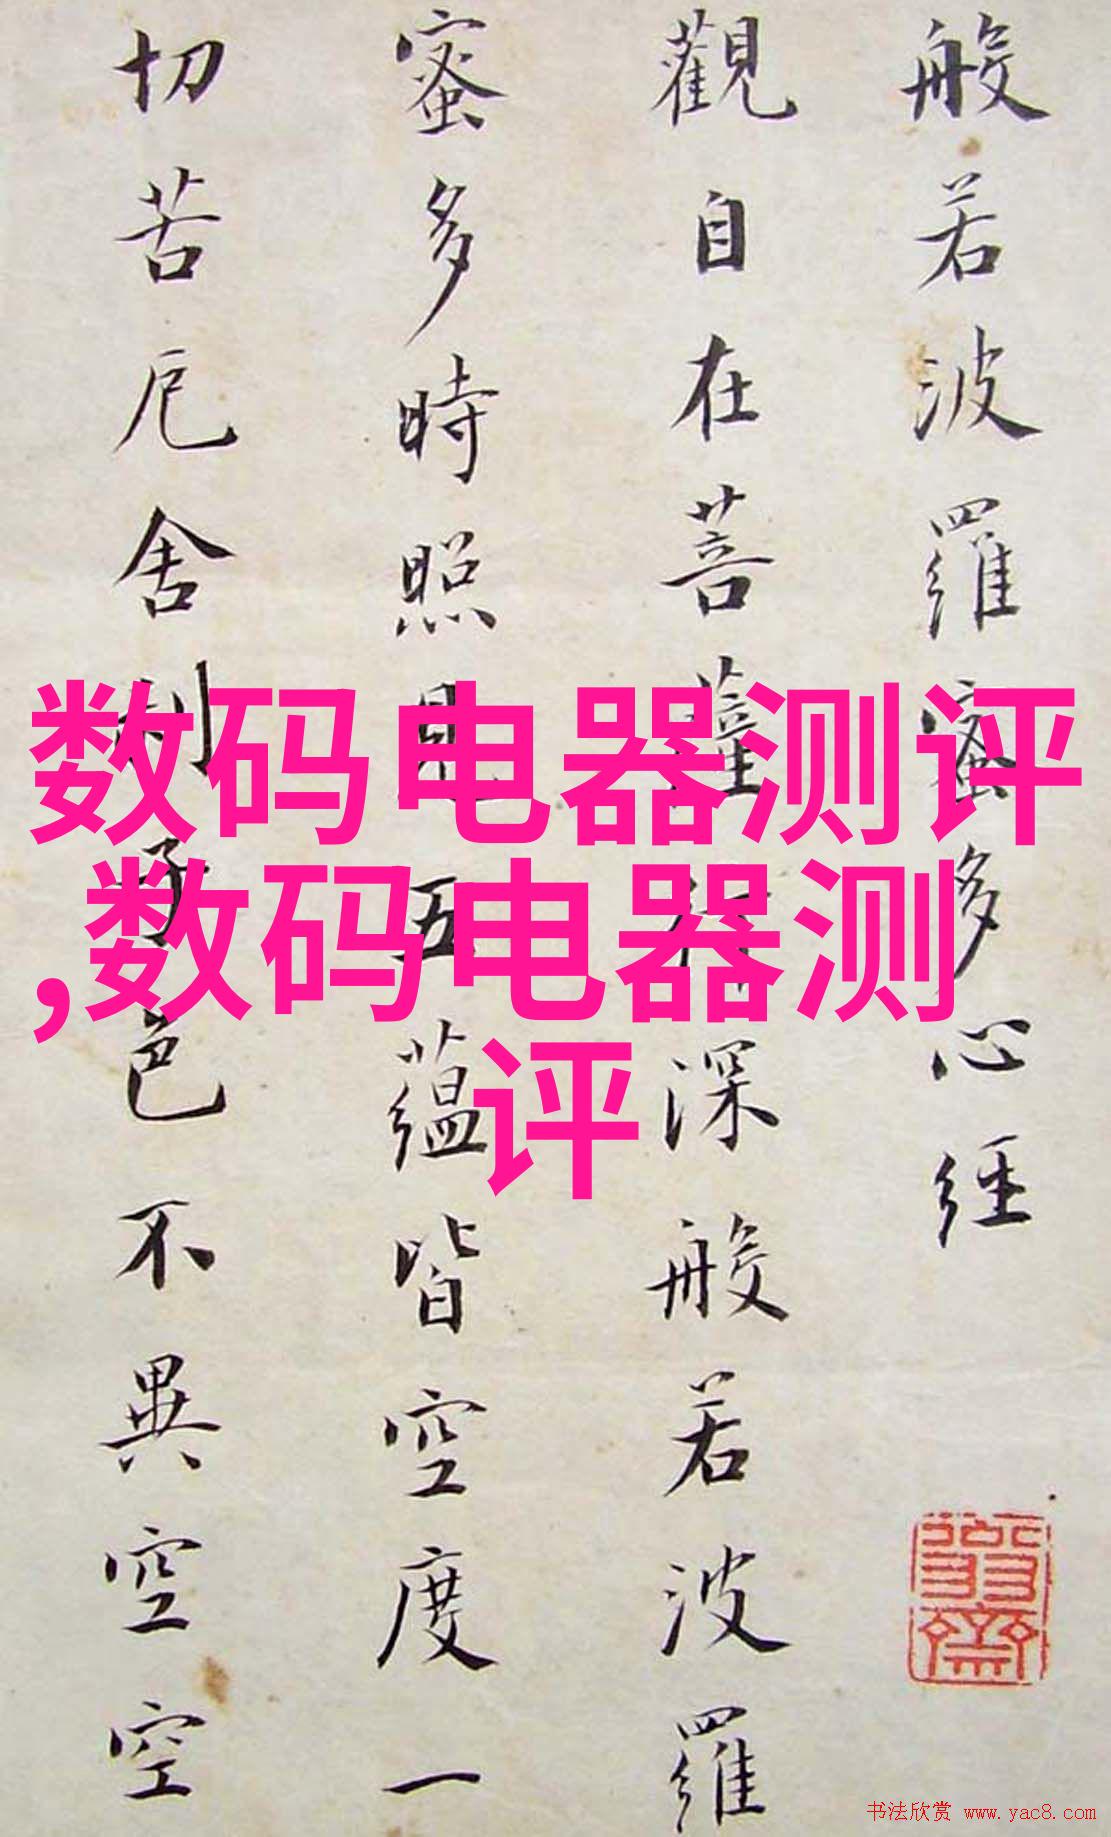 般若波羅蜜多心經
觀自在菩薩行深般若波羅
蜜多時照見五蘊皆空度一
切苦厄舍利子色不異空空
数码电器测评
,数码电器测
评
书法欣赏 www.yac8.com